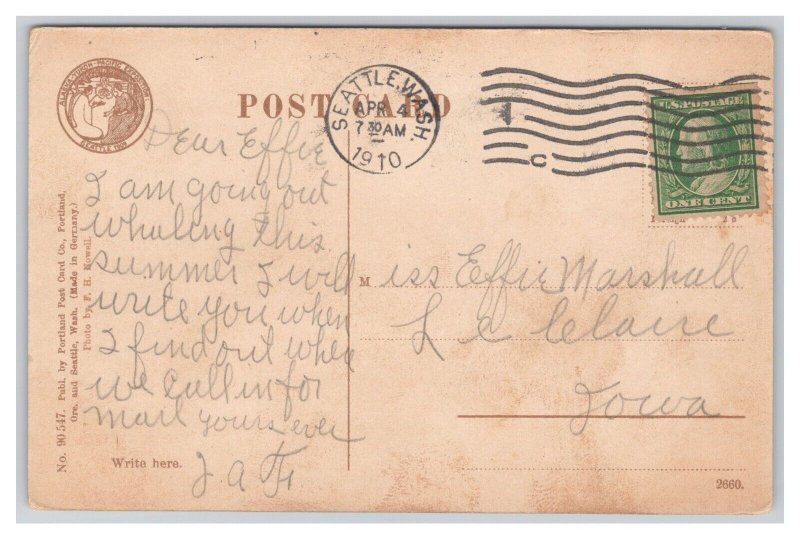 ALASKA-YUKON-PACIFIC EXPOSITION
SEATTLE 1909
POST CARD
SEATTLE, WASH.
APR 4
7 30 AM
1910
C
U.S. POSTAGE
ONE CENT
Dear Effie
I am going out
whaling this
summer I will
write you when
I find out where
we call in for
mail yours ever
Miss Effie Marshall
Le Claire
Iowa
No. 90547. Publ. by Portland Post Card Co., Portland,
Ore. and Seattle, Wash. (Made in Germany.)
Photo by F. H. Nowell.
Write here.
2660.